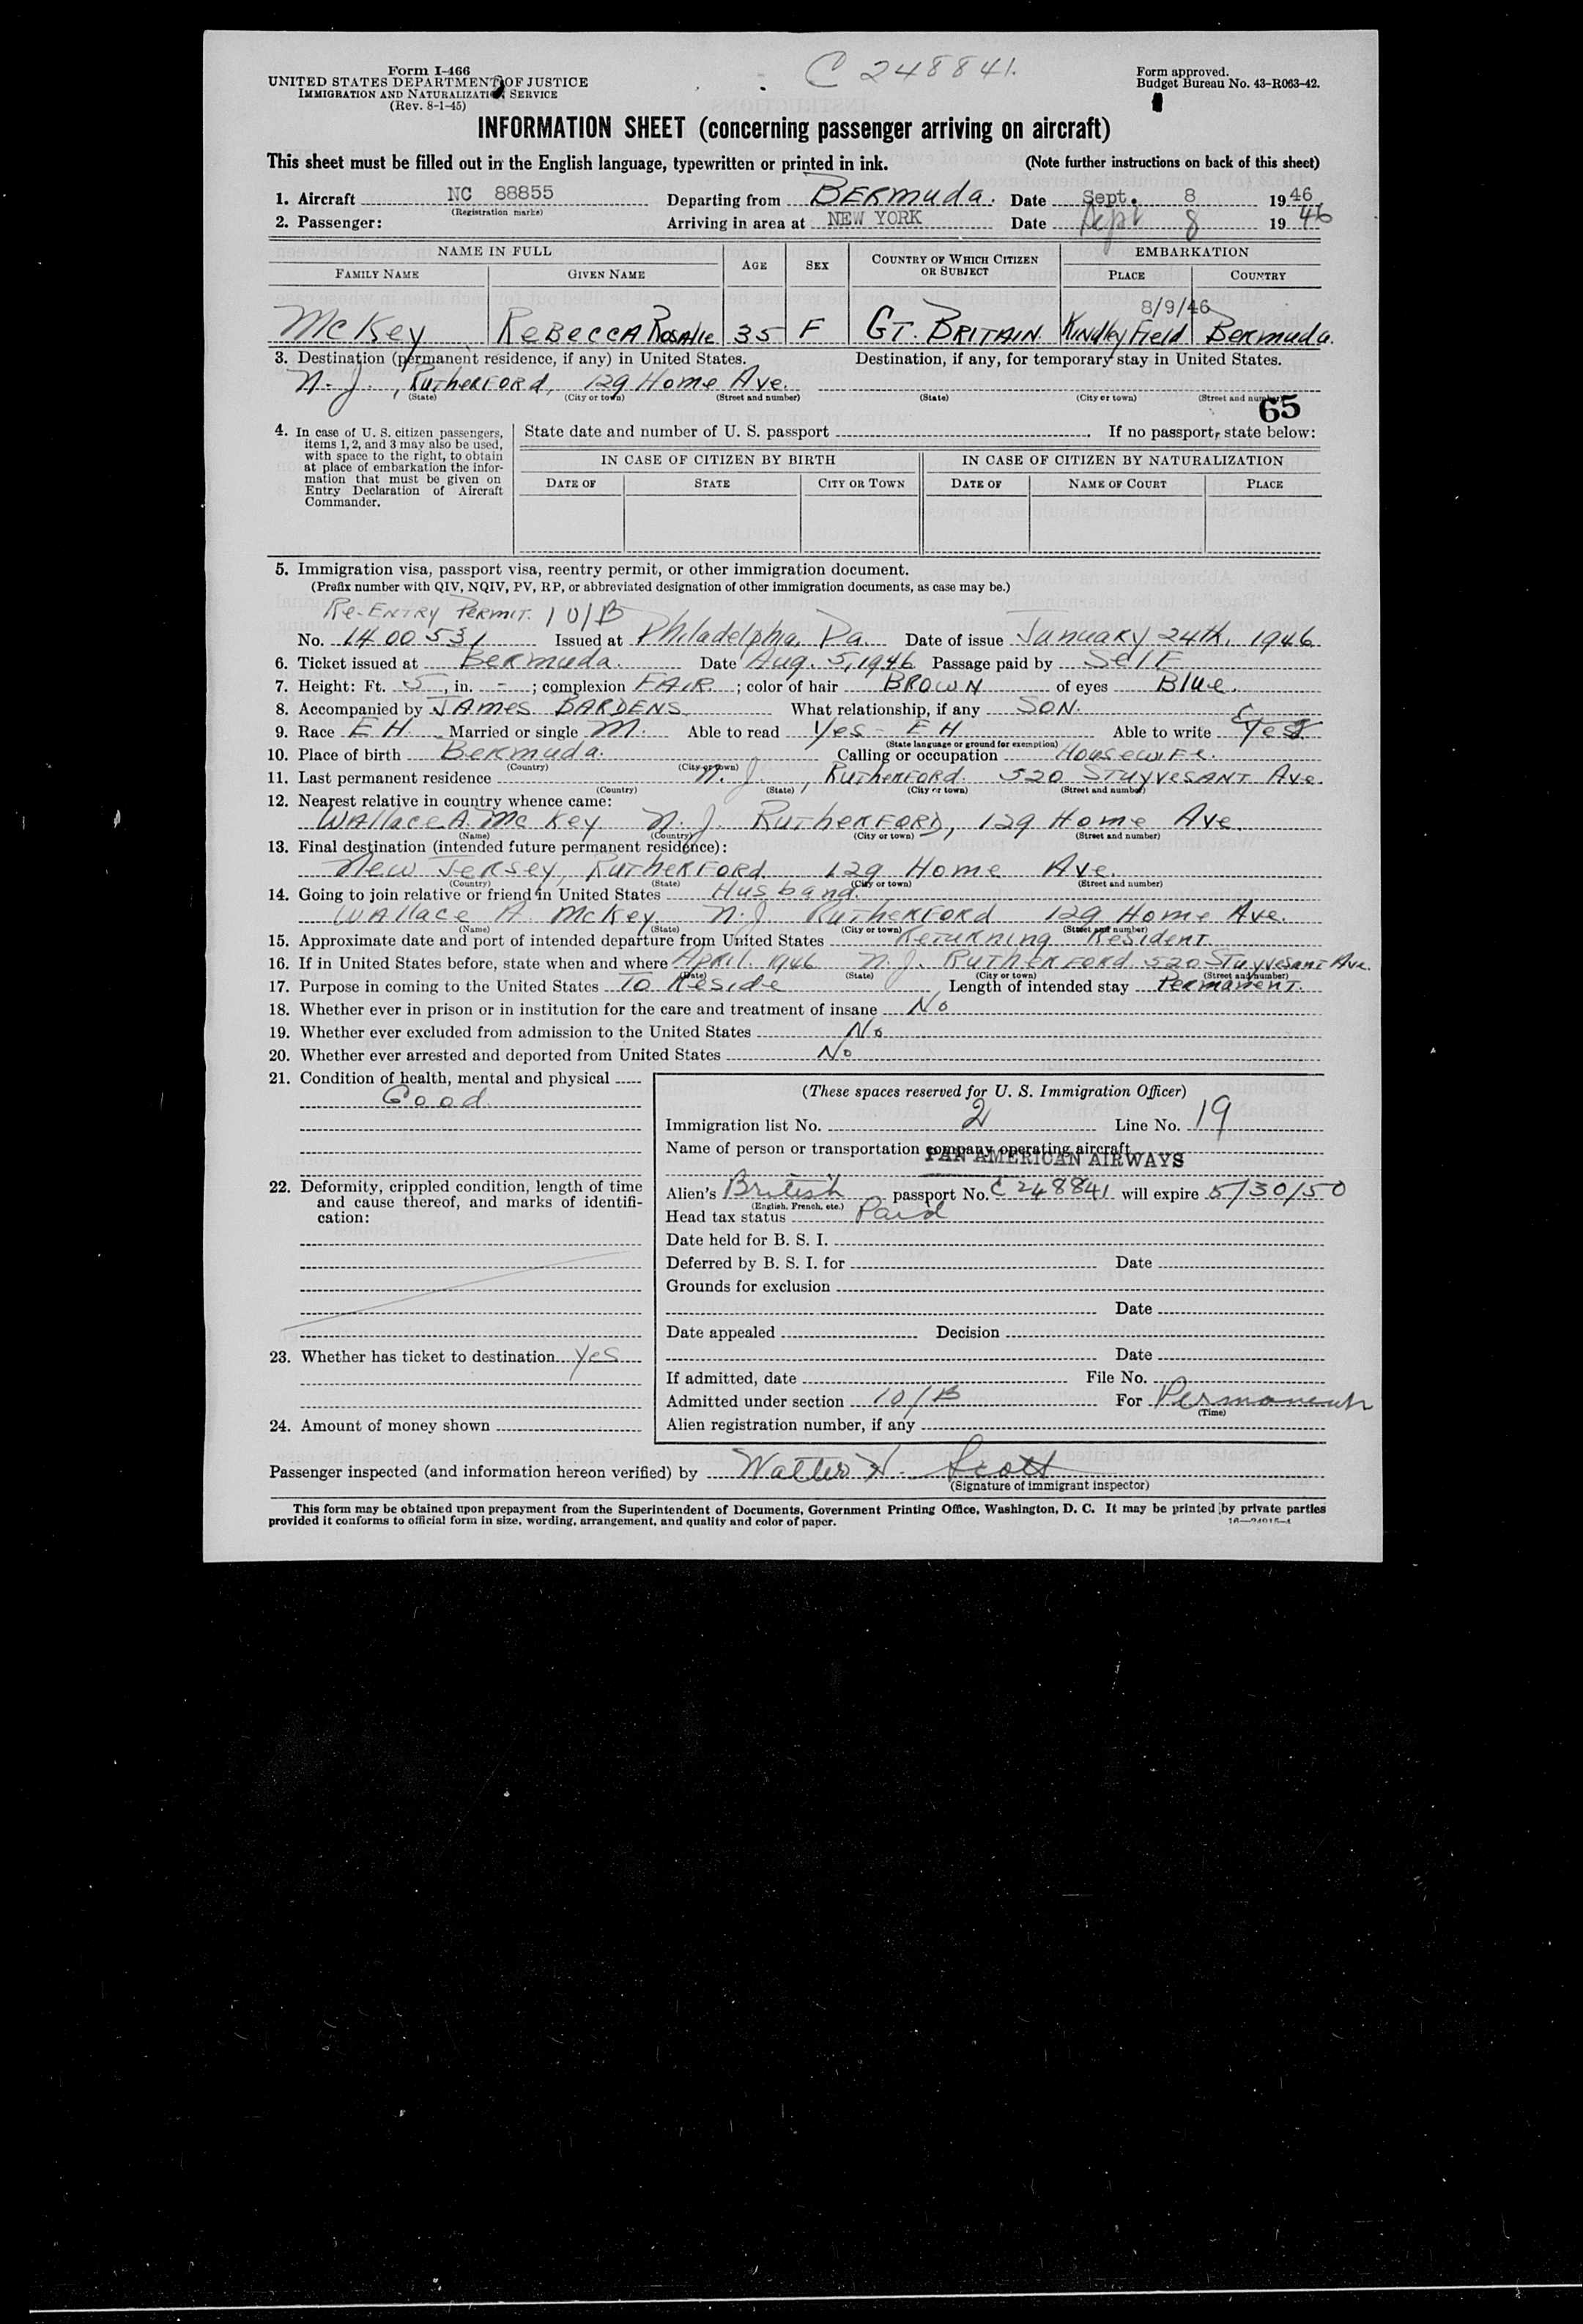 Form I-466
UNITED STATES DEPARTMENT OF JUSTICE
IMMIGRATION AND NATURALIZATION SERVICE
(Rev. 8-1-45)
C 248841.
Form approved.
Budget Bureau No. 43-R063-42.
INFORMATION SHEET (concerning passenger arriving on aircraft)
This sheet must be filled out in the English language, typewritten or printed in ink. (Note further instructions on back of this sheet)
1. Aircraft NC 88855 Departing from BERMUDA. Date Sept. 8 1946
(Registration marks)
2. Passenger: Arriving in area at NEW YORK Date Sept 8 1946
NAME IN FULL AGE SEX COUNTRY OF WHICH CITIZEN OR SUBJECT EMBARKATION
FAMILY NAME GIVEN NAME PLACE COUNTRY
8/9/46
McKey REBECCA ROSALIE 35 F GT. BRITAIN. KINDLEY FIELD BERMUDA.
3. Destination (permanent residence, if any) in United States. Destination, if any, for temporary stay in United States.
N.J., RUTHERFORD, 129 Home Ave.
(State) (City or town) (Street and number) (State) (City or town) (Street and number)
65
4. In case of U. S. citizen passengers, items 1, 2, and 3 may also be used, with space to the right, to obtain at place of embarkation the information that must be given on Entry Declaration of Aircraft Commander.
State date and number of U. S. passport . If no passport, state below:
IN CASE OF CITIZEN BY BIRTH IN CASE OF CITIZEN BY NATURALIZATION
DATE OF STATE CITY OR TOWN DATE OF NAME OF COURT PLACE
5. Immigration visa, passport visa, reentry permit, or other immigration document.
(Prefix number with QIV, NQIV, PV, RP, or abbreviated designation of other immigration documents, as case may be.)
Re-ENTRY PERMIT. 10/B
No. 1400531 Issued at Philadelpha, Pa. Date of issue January 24th, 1946
6. Ticket issued at Bermuda. Date Aug. 5, 1946 Passage paid by Self
7. Height: Ft. 5, in. - ; complexion FAIR. ; color of hair BROWN of eyes Blue.
8. Accompanied by JAMES DARDENS What relationship, if any SON.
9. Race EH. Married or single M. Able to read Yes - EH Able to write Yes
(State language or ground for exemption)
10. Place of birth Bermuda. Calling or occupation Housewife.
(Country) (City or town)
11. Last permanent residence N.J., RUTHERFORD 520 STUYVESANT Ave.
(Country) (State) (City or town) (Street and number)
12. Nearest relative in country whence came:
Wallace A. McKey N.J. RUTHERFORD, 129 Home Ave.
(Name) (Country) (City or town) (Street and number)
13. Final destination (intended future permanent residence):
New Jersey, RUTHERFORD 129 Home Ave.
(Country) (State) (City or town) (Street and number)
14. Going to join relative or friend in United States Husband.
Wallace A. McKey N.J. RUTHERFORD 129 Home Ave.
(Name) (State) (City or town) (Street and number)
15. Approximate date and port of intended departure from United States Returning Resident
16. If in United States before, state when and where April 1946 N.J. RUTHERFORD. 520 STUYVESANT Ave.
(Date) (State) (City or town) (Street and number)
17. Purpose in coming to the United States To Reside Length of intended stay Permanent.
18. Whether ever in prison or in institution for the care and treatment of insane No
19. Whether ever excluded from admission to the United States No
20. Whether ever arrested and deported from United States No
21. Condition of health, mental and physical
Good.
22. Deformity, crippled condition, length of time and cause thereof, and marks of identification:
23. Whether has ticket to destination Yes
24. Amount of money shown
(These spaces reserved for U. S. Immigration Officer)
Immigration list No. 2 Line No. 19
Name of person or transportation company operating aircraft
PAN AMERICAN AIRWAYS
Alien's British passport No. C248841 will expire 5/30/50
(English, French, etc.)
Head tax status Paid
Date held for B. S. I.
Deferred by B. S. I. for Date
Grounds for exclusion
Date
Date appealed Decision
Date
If admitted, date File No.
Admitted under section 10/B For Permanent
(Time)
Alien registration number, if any
Passenger inspected (and information hereon verified) by Walter H. Scott
(Signature of immigrant inspector)
This form may be obtained upon prepayment from the Superintendent of Documents, Government Printing Office, Washington, D. C. It may be printed by private parties
provided it conforms to official form in size, wording, arrangement, and quality and color of paper.